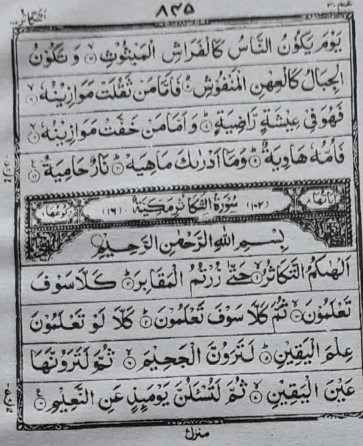 ٨٤٥
يَوْمَ يَكُوْنُ النَّاسُ كَالْفَرَاشِ الْمَبْثُوْثِ ۙ وَ تَكُوْنُ
الْجِبَالُ كَالْعِهْنِ الْمَنْفُوْشِ ؕ فَاَمَّا مَنْ ثَقُلَتْ مَوَازِيْنُهٗ ۙ
فَهُوَ فِیْ عِيْشَةٍ رَّاضِيَةٍ ؕ وَ اَمَّا مَنْ خَفَّتْ مَوَازِيْنُهٗ ۙ
فَاُمُّهٗ هَاوِيَةٌ ؕ وَ مَاۤ اَدْرٰىكَ مَاهِيَهْ ؕ نَارٌ حَامِيَةٌ
اٰيَاتُهَا (١٠٢) سُوْرَةُ التَّكَاثُرِ مَكِّيَّةٌ (١٦) رُكُوْعُهَا
بِسْمِ اللّٰهِ الرَّحْمٰنِ الرَّحِيْمِ
اَلْهٰىكُمُ التَّكَاثُرُ ۙ حَتّٰى زُرْتُمُ الْمَقَابِرَ ؕ كَلَّا سَوْفَ
تَعْلَمُوْنَ ۙ ثُمَّ كَلَّا سَوْفَ تَعْلَمُوْنَ ؕ كَلَّا لَوْ تَعْلَمُوْنَ
عِلْمَ الْيَقِيْنِ ؕ لَتَرَوُنَّ الْجَحِيْمَ ۙ ثُمَّ لَتَرَوُنَّهَا
عَيْنَ الْيَقِيْنِ ۙ ثُمَّ لَتُسْـَٔلُنَّ يَوْمَىِٕذٍ عَنِ النَّعِيْمِ
منزل